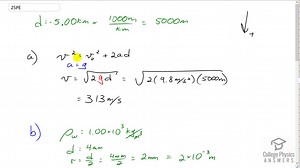 25PE
d = 5.00 km × 1000m/km = 5000m
+
a) v² = v₀² + 2ad
a = g
v = √2gd = √2(9.8 m/s²)(5000m)
= 313 m/s
b) ρw = 1.00 × 10³ kg/m³
d = 4mm
r = d/2 = 4mm/2 = 2mm = 2×10⁻³ m
College Physics
ANSWERS